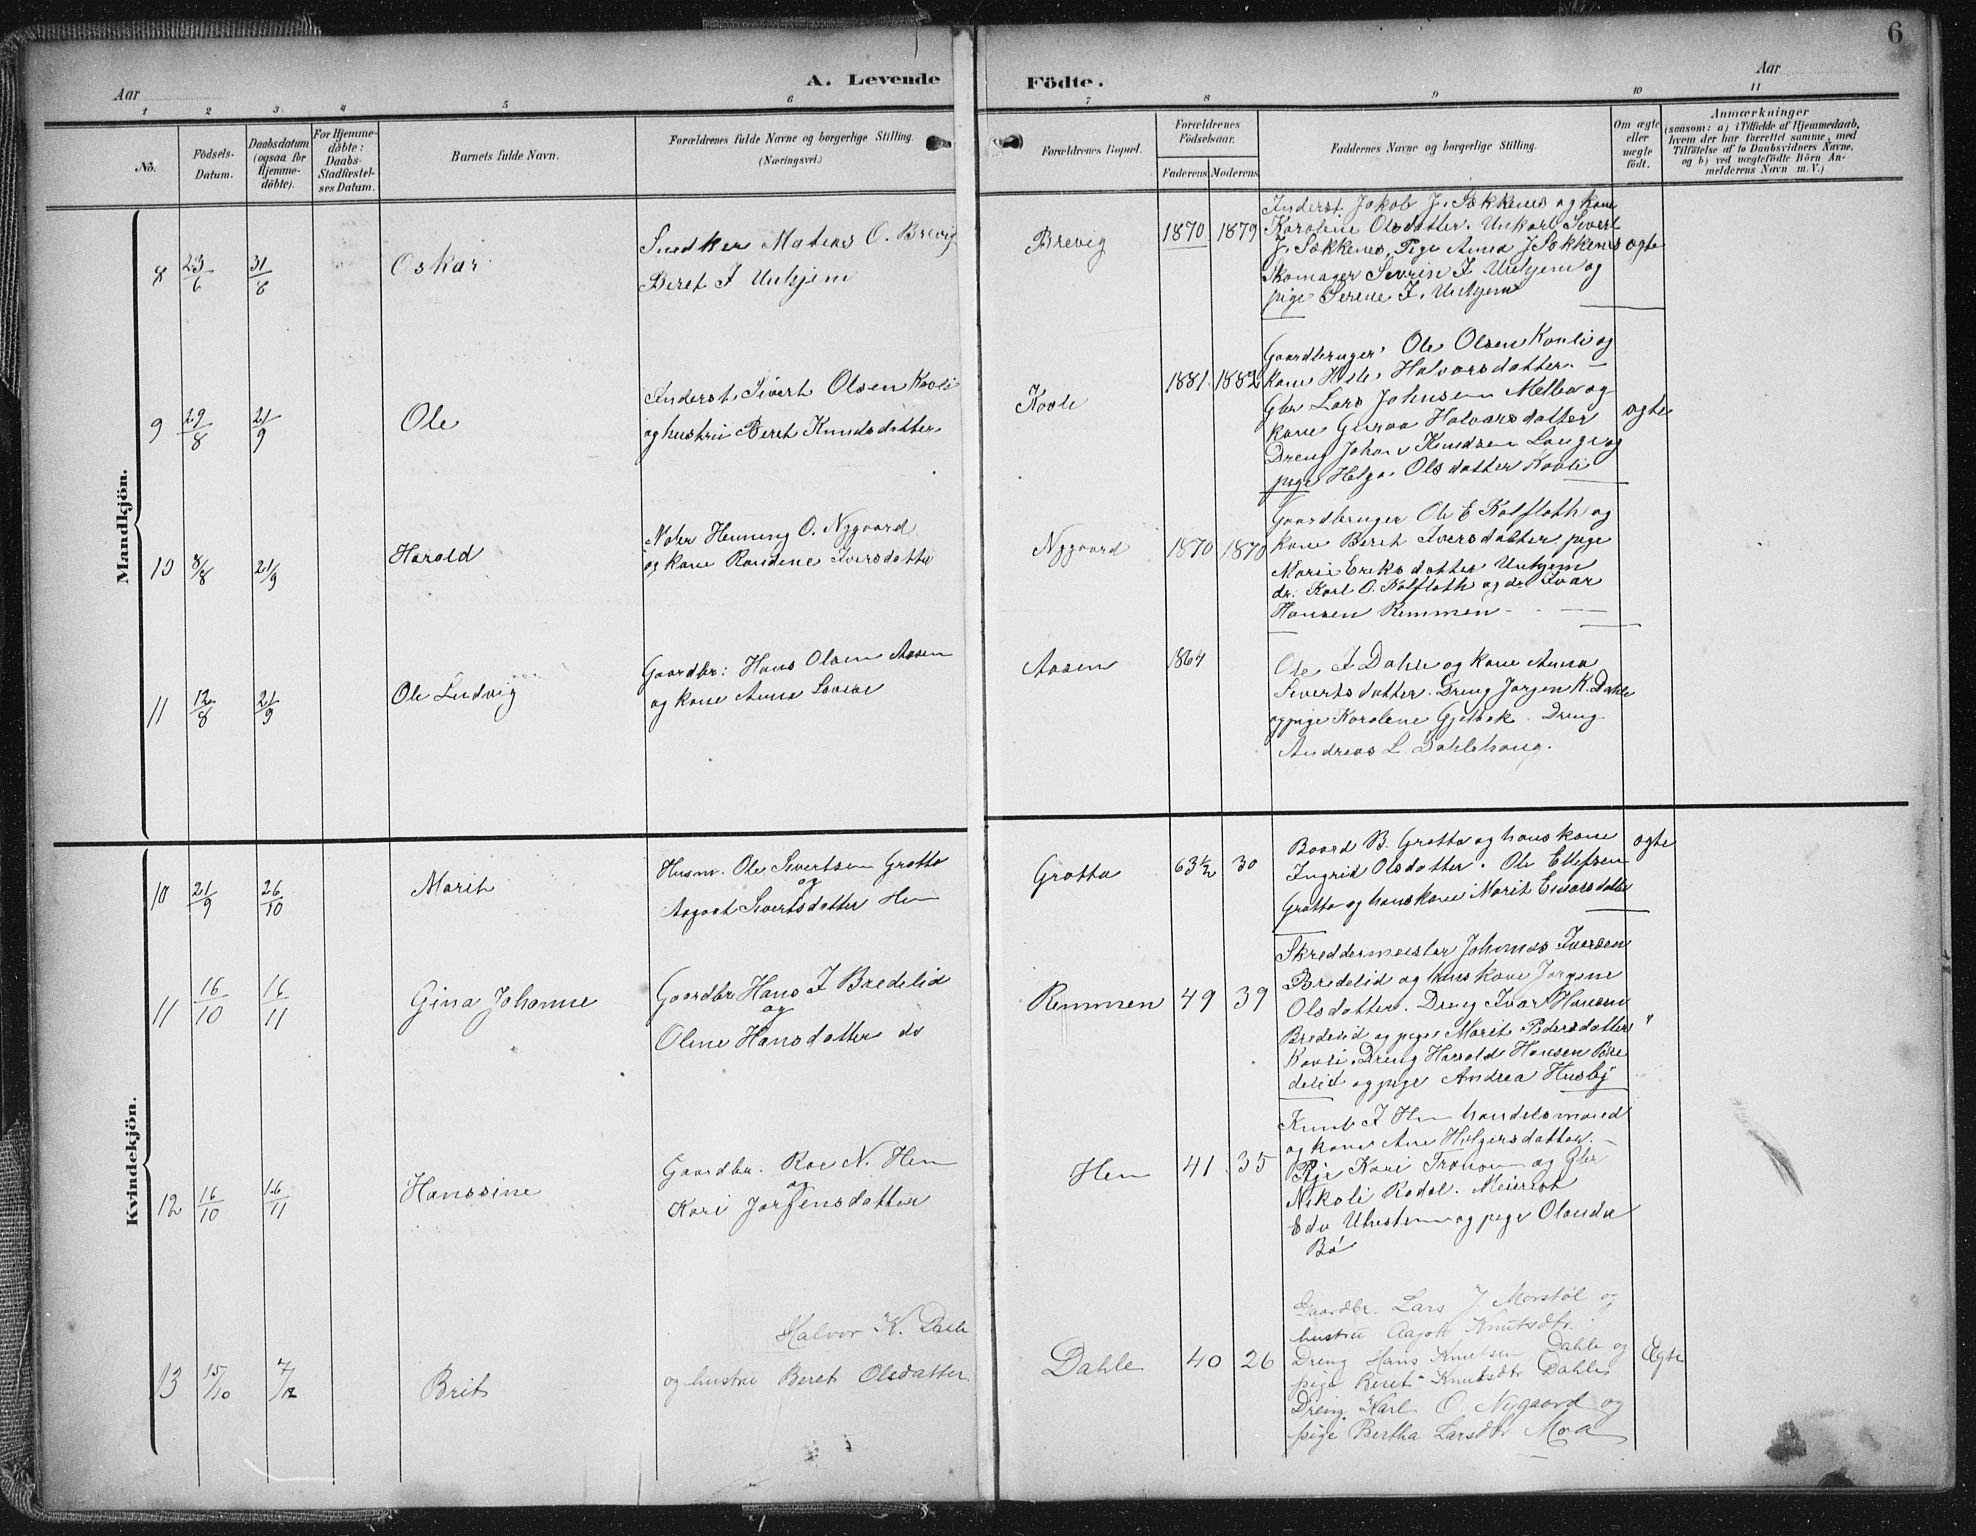 6
A. Levende
Födte.
Aar
Aar
1 2 3 4 5 6 7 8 9 10 11
No.
Födsels-
Datum.
Daabsdatum
(ogsaa for
Hjemme-
döbte).
For Hjemme-
döbte:
Daabs-
Stadfæstel-
ses Datum.
Barnets fulde Navn.
Forældrenes fulde Navne og borgerlige Stilling.
(Næringsvei.)
Forældrenes Bopæl.
Forældrenes
Födselsaar.
Faderens Moderens
Faddernes Navne og borgerlige Stilling.
Om ægte
eller
uægte
födt.
Anmærkninger
(saasom: a) i Tilfælde af Hjemmedaab,
hvem der har forrettet samme, med
Tilföielse af to Daabsvidners Navne,
og b) ved uægtefödte Börn An-
melderens Navn m. V.)
Mandkjön.
8 23/6 31/8 Oskar
Snedker Matias O. Brevig
Beret I Unhjem
Brevig 1870 1879
Inderst Jakob J. Sækkenes og kone
Karolene Olsdatter. Unkarl Sivert
J. Sækkenes, Pige Anna J Sækkenes
Skomager Severin I Unhjem og
pige Serene I. Unhjem
ægte
9 29/8 21/9 Ole
Inderst, Sivert Olsen Kavli
og hustru Beret Knudsdatter
Kavli 1881 1882
Gaardbruger Ole Olsen Kavli og
kone Halvarsdatter.
Gbr Lars Johnsen Melbø og
kone Guroa Halvarsdatter
Dreng Johan Knudsen Lange og
pige Helga Olsdatter Kavli
ægte
10 8/8 21/9 Harald
Henning O. Nygaard
og kone Randine Iversdatter
Nygaard 1870 1870
Gaardbruger Ole E Kolfloth og
kone Berit Iversdatter pige
Marie Eriksdatter Unhjem
dr. Karl O. Kolfloth og dr Ivar
Hansen Remmen
11 12/8 21/9 Ole Ludvig
Gaardbr: Hans Olsen Aasen
og kone Anna
Aasen 1864
Ole I Dahle og kone Anna
Sivertsdatter. Dreng Jørgen K. Dahle
og pige Karolene Gjelbak. Dreng
Andreas L. Dahlehaug.
Kvindekjön.
10 21/9 26/10 Marit
Husm. Ole Sivertsen Grøtta
og
Aagaat Sivertsdatter Hen
Grøtta 63 1/2 30
Baard B. Grøtta og hans kone
Ingrid Olsdatter. Ole Ellefsen
Grøtta og hans kone Marit Einarsdatter
ægte
11 16/10 16/11 Gina Johanne
Gaardbr Hans I Bredelid
og
Oline Hansdatter do
Remmen 49 39
Skreddermester Johannes Iversen
Bredelid og hans kone Jørgine
Olsdatter. Dreng Ivar Hansen
Bredelid og pige Marit Pedersdatter
Kavli. Dreng Harald Hansen Bre
delid og pige Andrea Husby
"
12 16/10 16/11 Hanssine
Gaardbr. Roe N. Hen
og
Kari Jørgensdatter
Hen 41 35
Knut I Hen handelsmand
og kone Ane Holgersdatter.
Pige Kari og Gbr
Nikoli Rødal. Meierist
Edv og pige Olanda
Bø
13 15/10 7/12 Brit
Halvor K. Dahle
og hustru Beret Olsdatter
Dahle 40 26
Gaardbr. Lars J. Morstøl og
hustru Aagot Knutsdtr.
Dreng Hans Knutsen Dahle og
pige Beret Knutsdtr Dahle,
Dreng Karl O. Nygaard og
pige Bertha Larsdtr Moa
Ægte